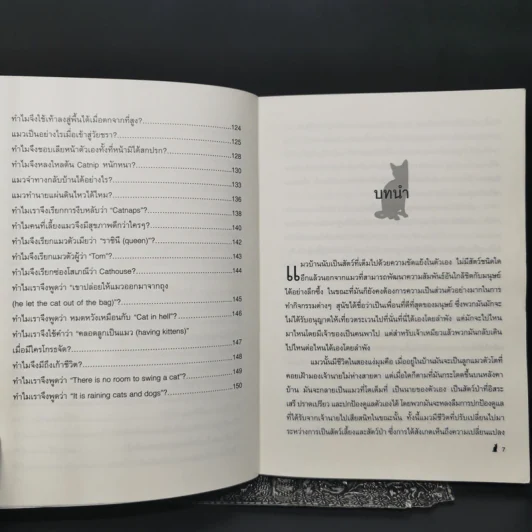 ทำไมจึงใช้เท้าลงสู่พื้นได้เมื่อตกจากที่สูง? 124
แมวเป็นอย่างไรเมื่อเข้าสู่วัยชรา? 125
ทำไมจึงชอบเลียหน้าตัวเองทั้งที่หน้ามิได้สกปรก? 128
ทำไมจึงหลงใหลต้น Catnip หนักหนา? 130
แมวจำทางกลับบ้านได้อย่างไร? 133
แมวทำนายแผ่นดินไหวได้ไหม? 136
ทำไมเราจึงเรียกการงีบหลับว่า "Catnaps"? 138
ทำไมคนที่เลี้ยงแมวจึงมีสุขภาพดีกว่าใครๆ? 140
ทำไมจึงเรียกแมวตัวเมียว่า "ราชินี (queen)"? 142
ทำไมจึงเรียกแมวตัวผู้ว่า "Tom"? 143
ทำไมจึงเรียกซ่องโสเภณีว่า Cathouse? 144
ทำไมเราจึงพูดว่า "เขาปล่อยให้แมวออกมาจากถุง
(he let the cat out of the bag)"? 145
ทำไมเราจึงพูดว่า หมดหวังเหมือนกับ "Cat in hell"? 146
ทำไมเราจึงใช้คำว่า "คลอดลูกเป็นแมว (having kittens)"
เมื่อมีใครโกรธจัด? 147
ทำไมจึงมีถึงเก้าชีวิต? 148
ทำไมเราจึงพูดว่า "There is no room to swing a cat"? 149
ทำไมเราจึงพูดว่า "It is raining cats and dogs"? 150
บทนำ
แมวบ้านนับเป็นสัตว์ที่เต็มไปด้วยความขัดแย้งในตัวเอง ไม่มีสัตว์ชนิดใด
อีกแล้วนอกจากแมวที่สามารถพัฒนาความสัมพันธ์อันใกล้ชิดกับมนุษย์
ได้อย่างลึกซึ้ง ในขณะที่มันก็ยังคงต้องการความเป็นส่วนตัวอย่างมากในการ
ทำกิจกรรมต่างๆ สุนัขได้ชื่อว่าเป็นเพื่อนที่ดีที่สุดของมนุษย์ ซึ่งพวกมันมักจะ
ไม่ได้รับอนุญาตให้เที่ยวตระเวนไปที่นั่นที่นี่ได้เองโดยลำพัง แต่มักจะไปไหน
มาไหนโดยมีเจ้าของเป็นคนพาไป แต่สำหรับเจ้าเหมียวแล้วพวกมันกลับเดิน
ไปไหนต่อไหนได้เองโดยลำพัง
แมวนั้นมีชีวิตในสองแง่มุมคือ เมื่ออยู่ในบ้านมันจะเป็นลูกแมวตัวโตที่
คอยเฝ้ามองเจ้านายไม่ห่างสายตา แต่เมื่อใดก็ตามที่มันกระโดดขึ้นบนหลังคา
บ้าน มันจะกลายเป็นแมวที่โตเต็มที่ เป็นนายของตัวเอง เป็นสัตว์ป่าที่อิสระ
เสรี ปราดเปรียว และปกป้องดูแลตัวเองได้ โดยพวกมันจะลืมการปกป้องดูแล
ที่ได้รับจากเจ้านายไปเสียสนิทในขณะนั้น ทั้งนี้แมวมีชีวิตที่ปรับเปลี่ยนไปมา
ระหว่างการเป็นสัตว์เลี้ยงและสัตว์ป่า ซึ่งการได้สังเกตเห็นถึงความเปลี่ยนแปลง
7